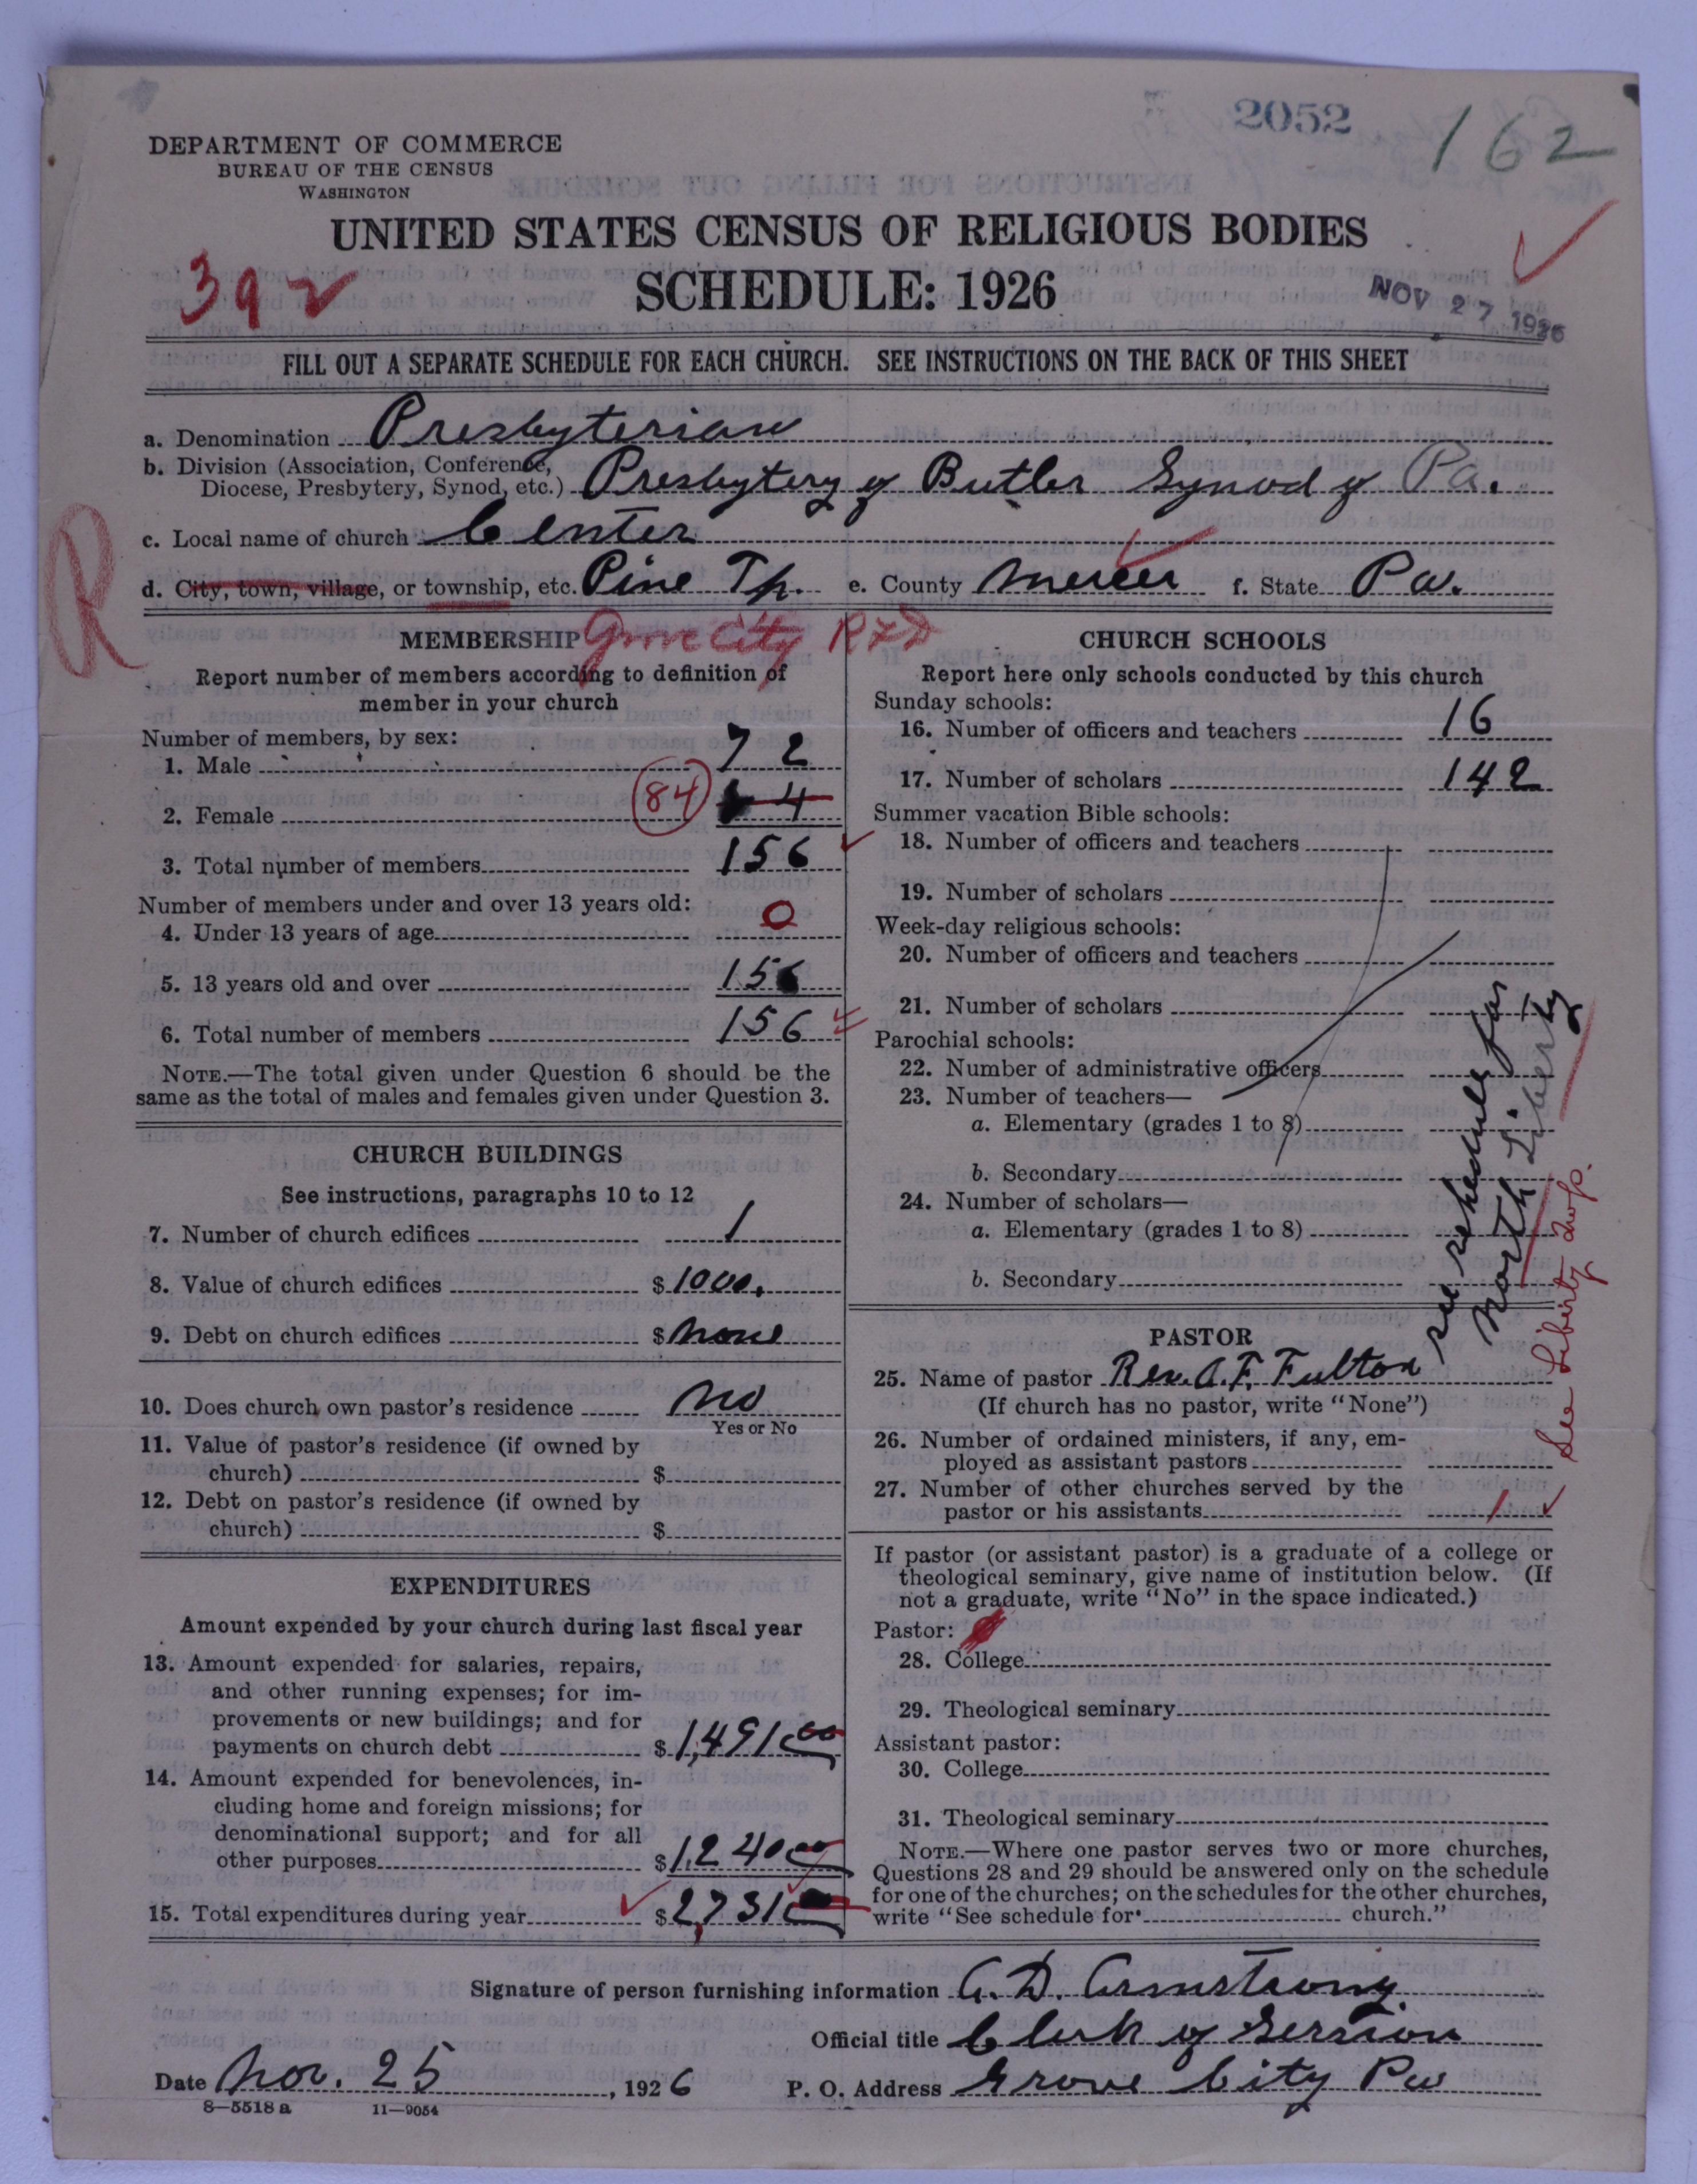 2052
162
DEPARTMENT OF COMMERCE
BUREAU OF THE CENSUS
WASHINGTON
UNITED STATES CENSUS OF RELIGIOUS BODIES
392
SCHEDULE: 1926
NOV 27 1926
FILL OUT A SEPARATE SCHEDULE FOR EACH CHURCH. SEE INSTRUCTIONS ON THE BACK OF THIS SHEET
a. Denomination Presbyterian
b. Division (Association, Conference,
Diocese, Presbytery, Synod, etc.) Presbytery of Butler Synod of Pa.
c. Local name of church Center
R
d. City, town, village, or township, etc. Pine Tp. e. County Mercer f. State Pa.
MEMBERSHIP Grove City RFD
Report number of members according to definition of
member in your church
Number of members, by sex:
1. Male 72
2. Female 84 4
3. Total number of members 156
Number of members under and over 13 years old:
4. Under 13 years of age 0
5. 13 years old and over 156
6. Total number of members 156
NOTE.—The total given under Question 6 should be the
same as the total of males and females given under Question 3.
CHURCH BUILDINGS
See instructions, paragraphs 10 to 12
7. Number of church edifices 1
8. Value of church edifices $1000.
9. Debt on church edifices $none
10. Does church own pastor's residence no
Yes or No
11. Value of pastor's residence (if owned by
church) $
12. Debt on pastor's residence (if owned by
church) $
EXPENDITURES
Amount expended by your church during last fiscal year
13. Amount expended for salaries, repairs,
and other running expenses; for im-
provements or new buildings; and for
payments on church debt $1,491 00
14. Amount expended for benevolences, in-
cluding home and foreign missions; for
denominational support; and for all
other purposes $1,240 00
15. Total expenditures during year $2,731
CHURCH SCHOOLS
Report here only schools conducted by this church
Sunday schools:
16. Number of officers and teachers 16
17. Number of scholars 142
Summer vacation Bible schools:
18. Number of officers and teachers
19. Number of scholars
Week-day religious schools:
20. Number of officers and teachers
21. Number of scholars
Parochial schools:
22. Number of administrative officers
23. Number of teachers—
a. Elementary (grades 1 to 8)
b. Secondary
24. Number of scholars—
a. Elementary (grades 1 to 8)
b. Secondary
see schedule for
North Liberty
See Liberty
PASTOR
25. Name of pastor Rev. A. F. Fulton
(If church has no pastor, write "None")
26. Number of ordained ministers, if any, em-
ployed as assistant pastors
27. Number of other churches served by the
pastor or his assistants 1
If pastor (or assistant pastor) is a graduate of a college or
theological seminary, give name of institution below. (If
not a graduate, write "No" in the space indicated.)
Pastor:
28. College
29. Theological seminary
Assistant pastor:
30. College
31. Theological seminary
NOTE.—Where one pastor serves two or more churches,
Questions 28 and 29 should be answered only on the schedule
for one of the churches; on the schedules for the other churches,
write "See schedule for church."
Signature of person furnishing information A. D. Armstrong
Official title Clerk of Session
Date Nov. 25, 1926 P. O. Address Grove City Pa
8—5518 a 11—9054